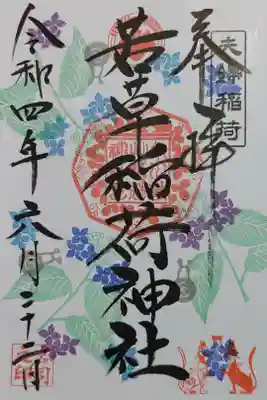 夫婦稲荷
奉拝
若草稲荷神社
令和四年六月二十二日